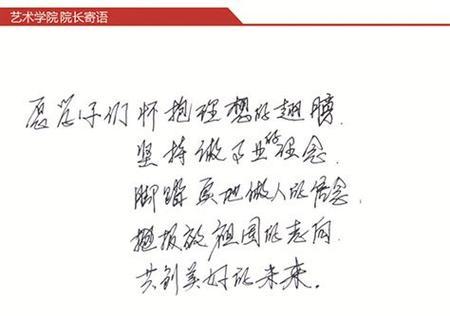 艺术学院 院长寄语
愿学子们怀抱理想的翅膀,
坚持做业的理念,
脚踏实地做人的信念,
报效祖国的志向,
共创美好的未来。